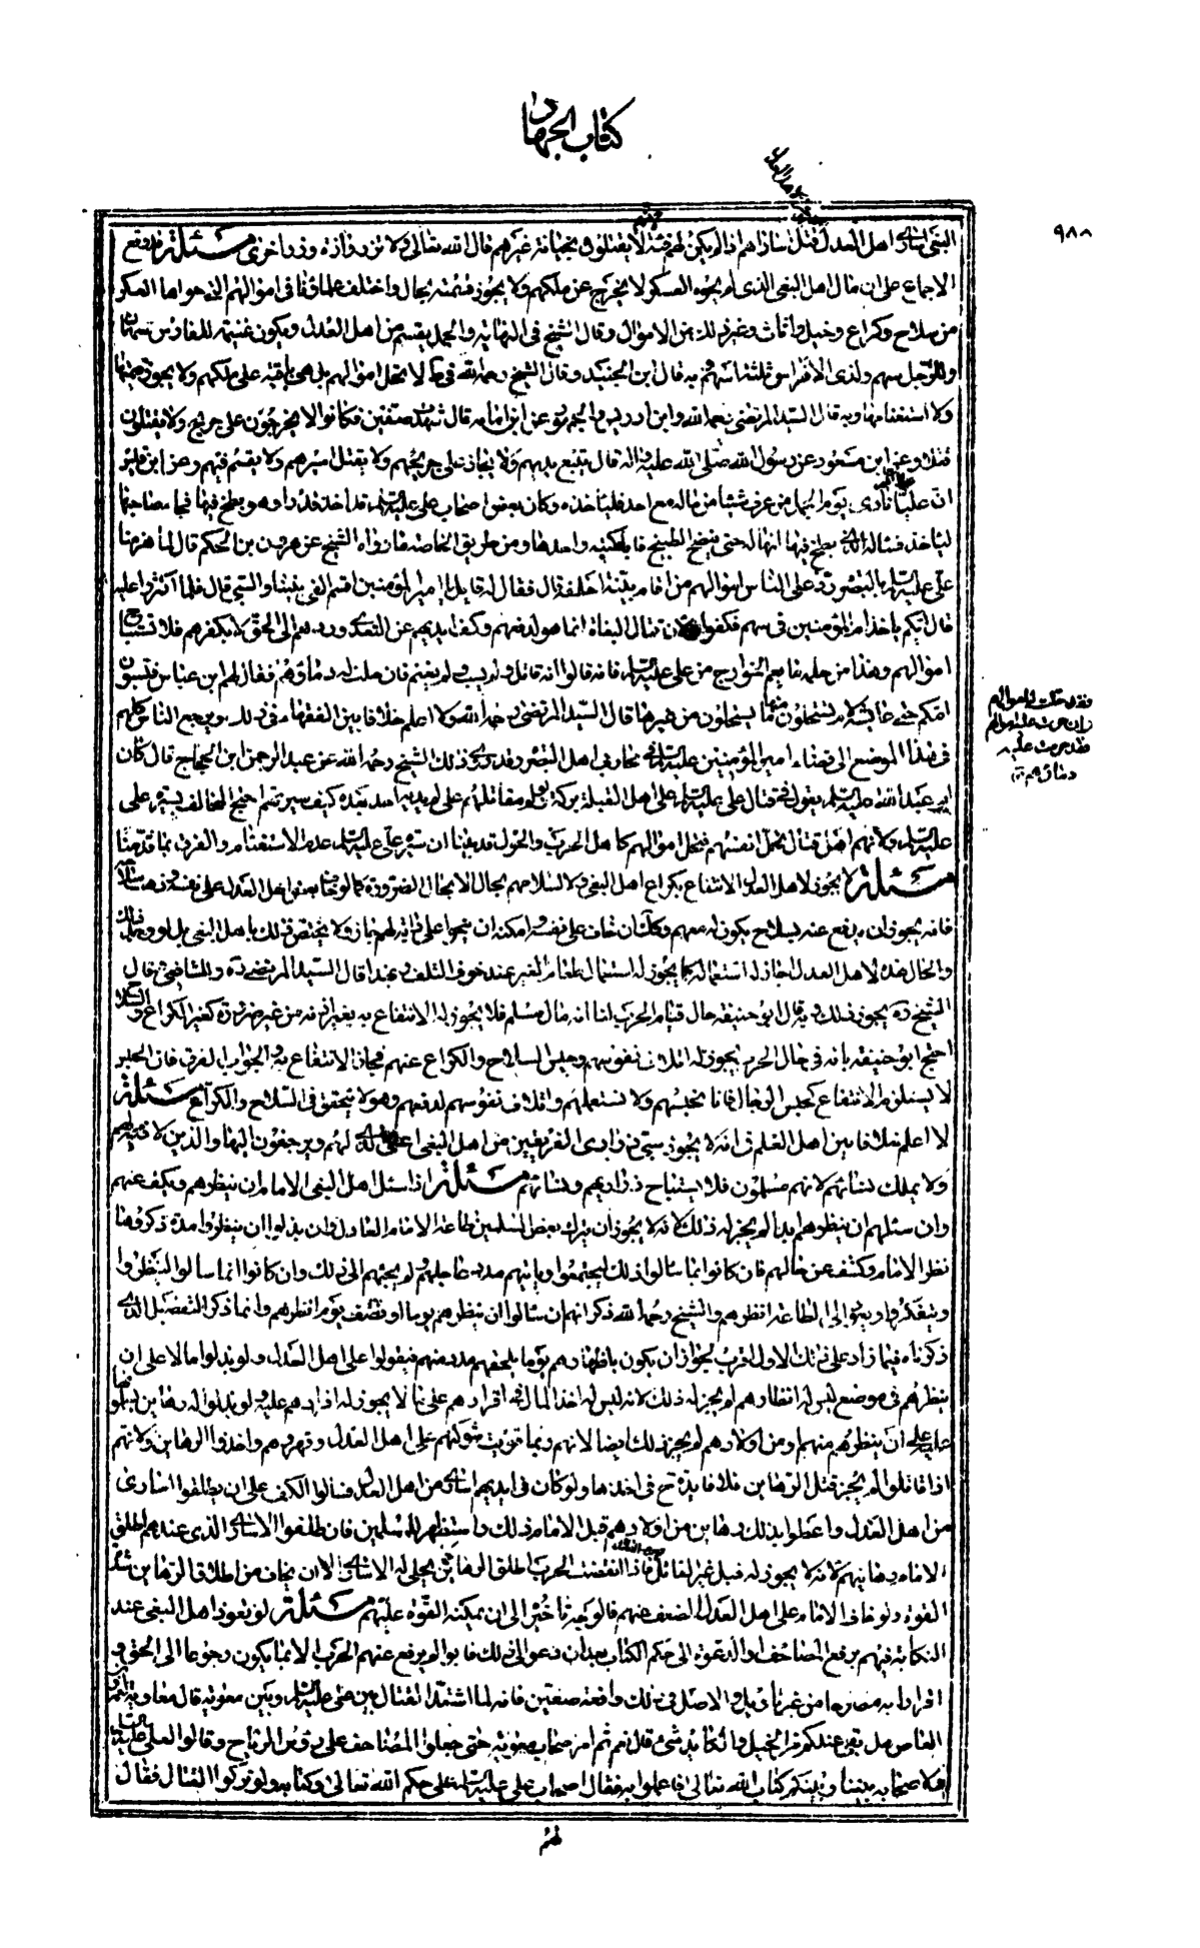 كتاب الجهاد
٩٨٨
البغى اسارى اهل العدل قتل اسارا هم اذا لم يكن لهم فئة لا يقتلون بجناية غيرهم قال الله تعالى ولا تزر وازرة وزر اخرى مسئلة قد وقع
الاجماع على ان مال اهل البغى الذى لم يحوه العسكر لا يخرج عن ملكهم ولا يجوز قسمته بحال واختلف علماؤنا فى اموالهم التى حواها العسكر
من سلاح وكراع وخيل واثاث وغير ذلك من الاموال وقال الشيخ فى النهاية والجمل يقسم من اهل العدل ويكون غنيمة للفارس سهمان
وللراجل سهم ولذى الافراس ثلثة اسهم وبه قال ابن الجنيد وقال الشيخ رحمه الله فى لا تحل اموالهم بل هى باقية على ملكهم ولا يجوز قسمتها
ولا استغنامها وبه قال السيد المرتضى رحمه الله وابن ادريس والجمهور عن ابى امامة قال شهدت صفين فكانوا لا يجهزون على جريح ولا يقتلون
وعن ابن مسعود عن رسول الله صلى الله عليه واله قال يتبع مدبرهم ولا يجاز على جريحهم ولا يقتل اسيرهم ولا يقسم فيهم وعن ابن قيس
ان عليا نادى يوم الجمل من عرف شيئا من ماله مع احد فليأخذه وكان بعض اصحاب على عليه السلام قد اخذ قدرا وهو يطبخ فيها فجاء صاحبها
ليأخذ فسئله الذى يطبخ فيها امهاله حتى ينضج الطبيخ فابى فكبه واخذها ومن طريق الخاصة ما رواه الشيخ عن مروان بن الحكم قال لما هزمنا
على عليه السلام بالبصرة رد على الناس اموالهم من اقام بينة احلفه قال فقال له قائل يا امير المؤمنين اقسم الفئ بيننا والسبى قال فلما اكثروا عليه
قال ايكم يأخذ ام المؤمنين فى سهمه فكفوا ولان قتال البغاة انما هو لدفعهم وكف ايديهم عن التعدى وردهم الى الحق لا بكفرهم فلا تستباح
اموالهم وهذا من جملة ما نقم الخوارج من على عليه السلام فانه قالوا انه قاتل ولم يسب ولم يغنم فان حلت له دماؤهم فقال لهم ابن عباس افتسبون
امكم يعنى عايشة ام تستحلون منها ما تستحلون من غيرها قال السيد المرتضى رحمه الله ولا اعلم خلافا بين الفقهاء فى ذلك ويرجع الناس كلهم
فى هذا الموضع الى قضاء امير المؤمنين عليه السلام فى محاربى اهل البصرة وقد روى ذلك الشيخ رحمه الله عن عبد الرحمن ابن الحجاج قال كان
ابى عبد الله عليه السلام يقول فى قتال على عليه السلام على اهل القبلة بركة ولو لم يقاتلهم على لم يدر احد بعده كيف يسير فيهم احتج المخالف بسيرة على
عليه السلام ولانهم اهل قتال فتحل اموالهم كاهل الحرب والجواب قد بينا ان سيرة على عليه السلام عدم الاستغنام والفرق بما قدمنا
مسئلة لا يجوز لاهل العدل الانتفاع بكراع اهل البغى ولا بسلاحهم بحال الا مجال الضرورة كما لو خاف بعض اهل العدل على نفسه وذهب سلاحه
فانه يجوز ان يدفع عنه بسلاح يكون له معهم وكذا ان خاف على نفسه وامكنه ان ينجو على دابة لهم جاز ولا يختص ذلك باهل البغى بل لو وجد ذلك
والحال هذه لاهل العدل جاز له استعماله كما يجوز له استعمال طعام الغير عند خوف التلف وبهذا قال السيد المرتضى ره والشافعى قال
الشيخ ره يجوز ذلك وبه قال ابو حنيفة حال قيام الحرب لنا انه مال مسلم فلا يجوز له الانتفاع به بغير اذنه من غير ضرورة كغير الكراع والسلاح
احتج ابو حنيفة بانه فى حال الحرب يجوز له اتلاف نفوسهم وحبس السلاح والكراع عنهم فجاز الانتفاع به والجواب الفرق فان الحبس
لا يستلزم الانتفاع كحبس الرجال فانا نحبسهم ولا نستعملهم واتلاف نفوسهم لدفعهم وهو لا يتحقق فى السلاح والكراع مسئلة
لا اعلم خلافا بين اهل العلم فى انه لا يجوز سبى ذرارى الفريقين من اهل البغى اعنى الذين لهم فئة يرجعون اليها والذين لا فئة لهم
ولا يملك نسائهم لانهم مسلمون فلا يستباح ذراريهم ونسائهم مسئلة اذا سئل اهل البغى الامام ان ينظرهم ويكف عنهم
وان سئلهم ان ينظرهم ابدا لم يجز له ذلك لانه لا يجوز ان يترك بعض المسلمين طاعة الامام العادل وان بذلوا ان ينظروا مدة ذكروها
نظر الامام وكشف عن حالهم فان كانوا انما سالوا ذلك ليجتمعوا وياتيهم مدد عاجلهم ولم يجبهم الى ذلك وان كانوا انما سالوا لينظروا
ويتفكروا ويرجعوا الى الطاعة انظرهم والشيخ رحمه الله ذكر انهم ان سالوا ان ينظرهم يوما او نصف يوم انظرهم وانما ذكر التفصيل الذى
ذكرناه فيما زاد على ذلك والاول اقرب لجواز ان يكون بانظارهم يوما يلحقهم مدد منهم فيقووا على اهل العدل ولو بذلوا مالا على ان
ينظرهم فى موضع ليس له انظارهم لم يجز له ذلك لانه ليس له اخذ المال فى اقرارهم على ما لا يجوز له اقرارهم عليه ولو بذلوا له رهاين
على ان ينظرهم منهم او من اولادهم لم يجز ذلك ايضا لانهم ربما قويت شوكتهم على اهل العدل وقهروهم واخذوا الرهاين ولانهم
اذا قاتلوا لم يجز قتل الرهاين فلا فايدة ح فى اخذها ولو كان فى ايديهم اسارى من اهل العدل فسالوا الكف على ان يطلقوا اسارى
من اهل العدل واعطوا بذلك رهاين من اولادهم قبل الامام ذلك واستظهر للمسلمين فان اطلقوا الاسارى الذى عندهم اطلق
الامام رهاينهم لانه لا يجوز له قتل غير القاتل فاذا انقضت الحرب اطلق الرهاين الا ان يخاف من اطلاق الرهاين
القوة ولو خاف الامام على اهل العدل الضعف عنهم فالوجه تأخيره الى ان يمكنه القوة عليهم مسئلة لو تعوذ اهل البغى عند
النكاية فيهم برفع المصاحف والدعوة الى حكم الكتاب بعد ان دعوا الى ذلك فابوا لم يرفع عنهم الحرب الا بما يكون رجوعا الى الحق
من غير تاويل والاصل فى ذلك واقعة صفين فانه لما اشتد القتال بين على عليه السلام وبين معوية قال معاوية لعمرو بن
العاص هل بقى عندك من الحيل والمكايد شئ قال نعم ثم امر اصحاب معوية حتى جعلوا المصاحف على رؤس الرماح وقالوا لعلى عليه السلام
ولاصحابه بيننا وبينكم كتاب الله تعالى فاعملوا به فقال اصحاب على عليه السلام على حكم الله تعالى وكتابه ولو تركوا القتال فقال
فقد حلت له اموالهم
وان حرمت عليه اموالهم
فقد حرمت عليه
دماؤهم
لهم